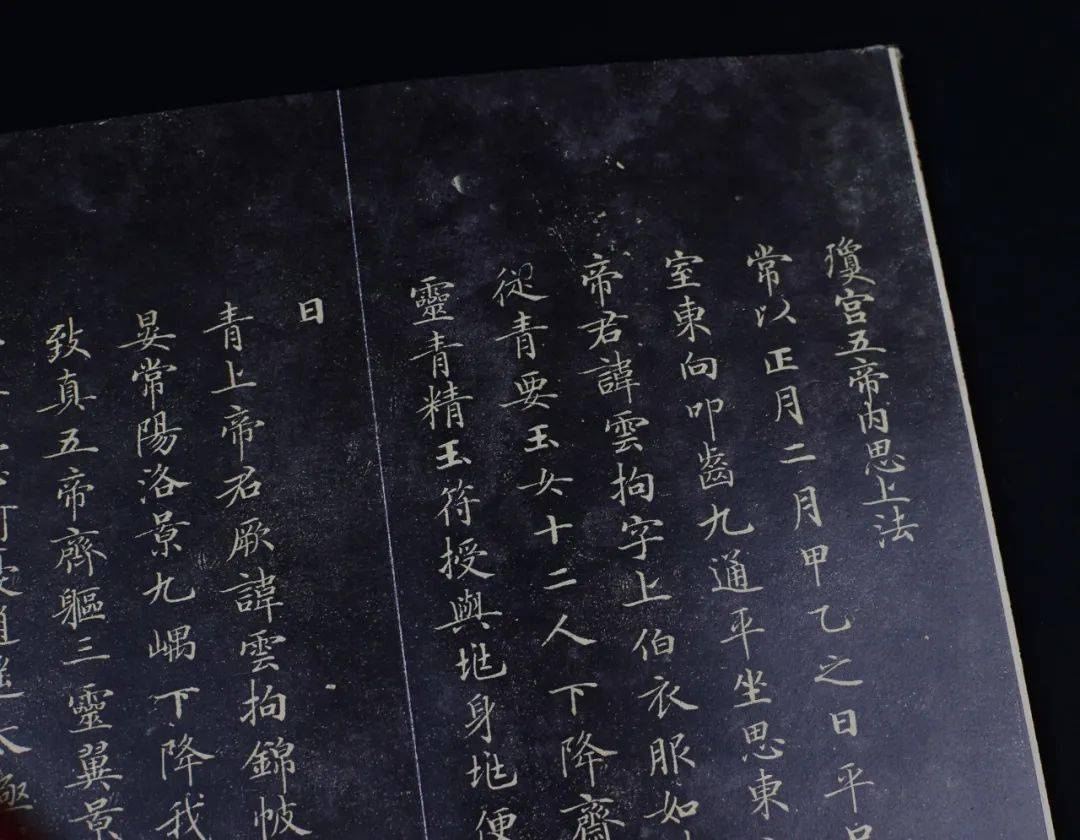 瓊宮五帝內思上法
常以正月二月甲乙之日平
室東向叩齒九通平坐思東
帝君諱雲拘字上伯衣服如
從青要玉女十二人下降齋
靈青精玉符授與地身地便
曰
青上帝君厥諱雲拘錦帔
晏常陽洛景九嵎下降我
致真五帝齊軀三靈翼景